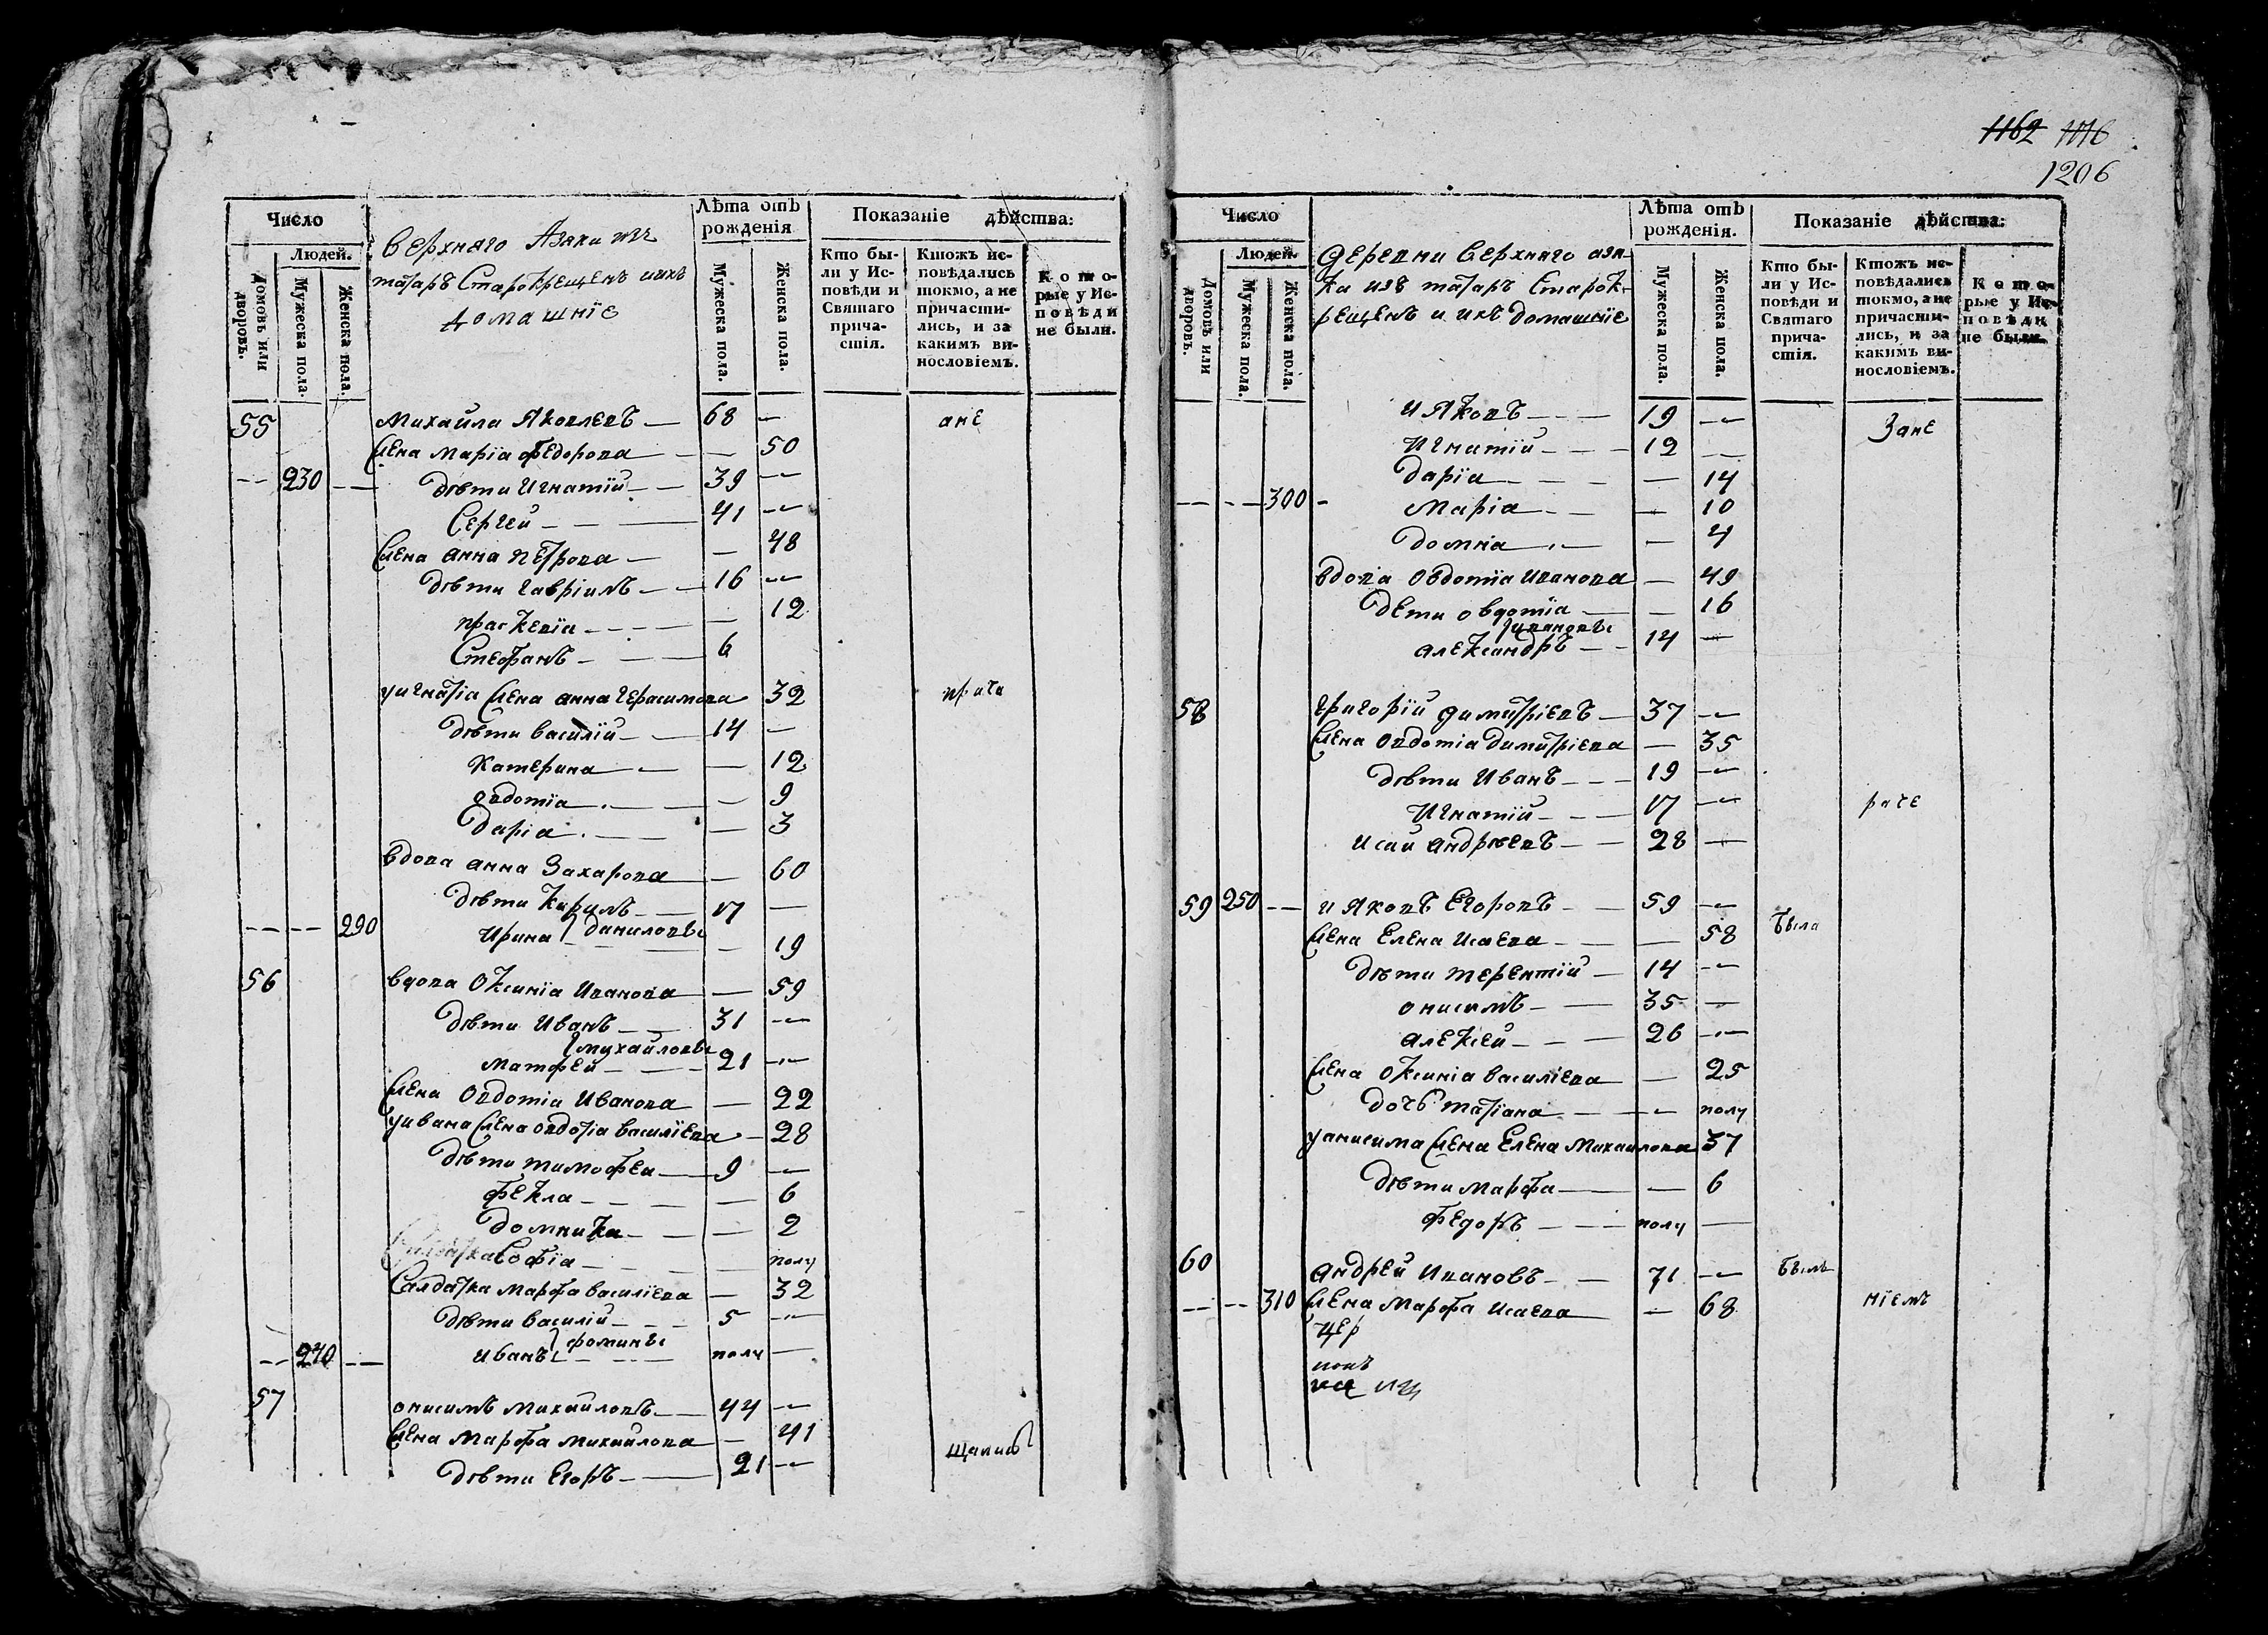 1162 1176
1206
Число
Людей.
Домовъ или дворовъ.
Мужеска пола.
Женска пола.
Верхняго Азяки изъ
татаръ Старокрещенъ иихъ
домашніе
Лѣта отъ рожденія
Мужеска пола.
Женска пола.
Показаніе дѣйства:
Кто были у Исповѣди и Святаго причастія.
Ктожъ исповѣдались токмо, а не причастились, и за какимъ винословіемъ.
Которые у Исповѣди не были.
55 Михайла Яковлевъ — 68 — ане
Жена Марія Федорова — — 50
— 230 — дѣти Игнатїй — 39 —
Сергей — 41 —
Жена анна Петрова — — 48
дѣти гавріилъ — 16 —
праскевїя — — 12
Стефанъ — 6
у игнатія Жена анна герасимова 32 проче
дѣти василїй — 14 —
Катерина — — 12
овдотїа — — 9
даріа — — 3
вдова анна Захарова — 60
дѣти Кирилъ — 17 —
— — 290 Ирина } даниловы — 19
56 вдова Оксинїа Иванова — 59
дѣти Иванъ — 31 —
} михайловы
Матфей — 21 —
Жена Овдотіа Иванова — 22
у ивана Жена овдотіа василїева — 28
дѣти тимофеа — 9 —
фекла — — 6
домника — — 2
Софїа — — полу
Салдатка Марфа василїева — 32
дѣти василїй — 5 —
— 240 — иванъ } фомины полу —
57 онисимъ Михайловъ — 44 —
Жена Марфа Михайлова — 41
дѣти Егоръ — 21 —
Число
Людей.
Домовъ или дворовъ.
Мужеска пола.
Женска пола.
деревни Верхняго азя-
ки изъ татаръ Старок-
рещенъ и ихъ домашніе
Лѣта отъ рожденія.
Мужеска пола.
Женска пола.
Показаніе дѣйства:
Кто были у Исповѣди и Святаго причастія.
Ктожъ исповѣдались токмо, а не причастились, и за какимъ винословіемъ.
Которые у Исповѣди не были.
и Яковъ — 19 — Зане
Игнатїй — 12 —
дарїа — — 14
— — 300 — Маріа — — 10
домна — — 4
вдова Овдотїа Иванова — 49
дети овдотїа — — 16
} ивановы
александръ — 14 —
58 григорїй димитріевъ — 37 —
Жена Овдотіа димитріева — 35
дѣти Иванъ — 19 —
Игнатїй — 17 — раче
Исаи андрѣевъ — 28 —
59 250 — и Яковъ Егоровъ — 59 —
Жена Елена Исаева — — 58 была
дѣти терентїй — 14 —
онисимъ — 35 —
алексей — 26 —
Жена Оксиніа василіева — 25
дочь татїана — — полу
у анисима Жена Елена Михаилова 37
дѣти Марфа — — 6
Федоръ — полу —
60 андрей Ивановъ — 71 — былъ
— — 310 Жена Марфа Исаева — 68 нїемъ